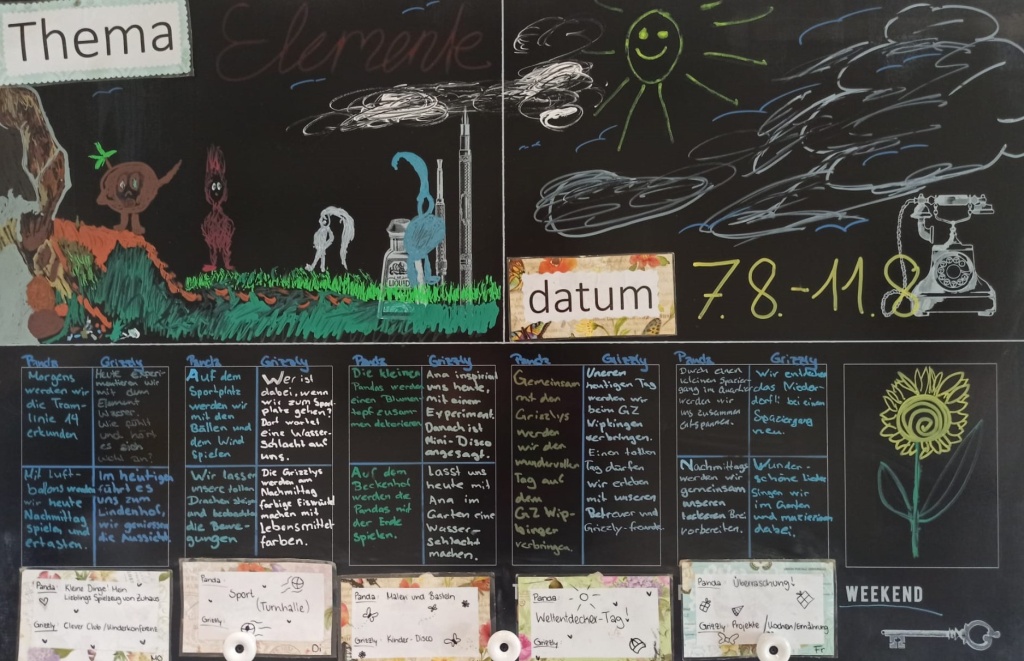 Thema
Elemente
datum
7.8.-11.8
LIQUID
Panda
Grizzly
Morgens
werden wir
die Tram-
linie 14
erkunden
Heute Experi-
mentieren wir
mit dem
Element
Wasser.
Wie fühlt
und hört
es sich
wohl an?
Mit Luft-
ballons werden
wir heute
Nachmittag
spielen und
ertasten.
Im heutigen
führt es
uns zum
Lindenhof,
wir geniessen
die Aussicht.
Panda
Grizzly
Auf dem
Sportplatz
werden wir
mit den
Bällen und
dem Wind
spielen
Wer ist
dabei, wenn
wir zum Sport-
platz gehen?
Dort wartet
eine Wasser-
Schlacht auf
uns.
Wir lassen
unsere tollen
Drachen steigen
und beobachten
die Bewe-
gungen
Die Grizzlys
werden am
Nachmittag
farbige Eiswürfel
machen mit
Lebensmittel
farben.
Panda
Grizzly
Die kleinen
Pandas werden
einen Blumen-
topf zusam-
men dekorieren
Ana inspiriert
uns heute,
mit einem
Experiment.
Danach ist
Mini-Disco
angesagt.
Auf dem
Beckenhof
werden die
Pandas mit
der Erde
spielen.
Lasst uns
heute mit
Ana im
Garten eine
Wasser-
schlacht
machen.
Panda
Grizzly
Gemeinsam
mit den
Grizzlys
werden
wir den
wundervollen
Tag auf
dem
GZ Wip-
kinger
verbringen.
Unseren
heutigen Tag
werden wir
beim GZ
Wipkingen
verbringen.
Einen tollen
Tag dürfen
wir erleben
mit unseren
Betreuer und
Grizzly-freunde.
Panda
Grizzly
Durch einen
kleinen Spazier-
gang im Quartier
werden wir
uns zusammen
entspannen.
Wir entdecken
das Nieder-
dorf: bei einem
Spaziergang
neu.
Nachmittags
werden wir
gemeinsam
unseren
leckeren Brei
vorbereiten.
Wunder-
schöne Lieder
Singen wir
im Garten
und musizieren
dabei.
Panda: Kleine Dinge! Mein
Lieblings Spielzeug von Zuhaus
Grizzly: Clever Club/Kinderkonferenz
Mo
Panda:
Sport
(Turnhalle)
Grizzly:
Di
Panda: Malen und Basteln
Grizzly: Kinder-Disco
Panda:
Weltentdecker-Tag!
Grizzly:
Panda: Überraschung!
Grizzly: Projekte / Kochen/Ernährung
Fr
WEEKEND